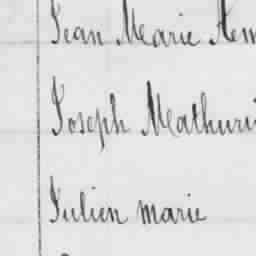 Jean Marie
Joseph Mathuri
Julien marie